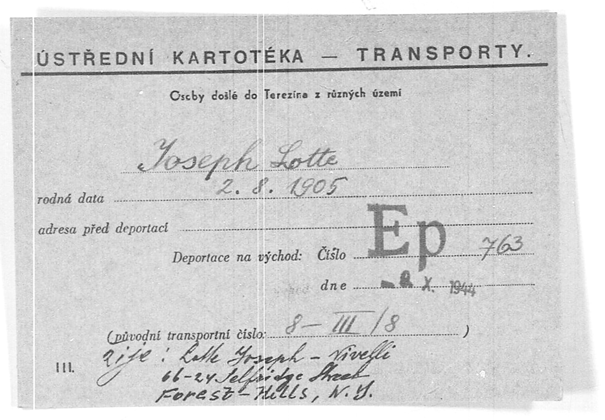 ÚSTŘEDNÍ KARTOTÉKA — TRANSPORTY.
Osoby došlé do Terezína z různých území
Joseph Lotte
rodná data 2. 8. 1905
adresa před deportací
Deportace na východ: Číslo Ep 763
dne X. 1944
(původní transportní číslo: 8 – III / 8 )
žije : Lotte Joseph – Nivelli
III. 66-24 Selfridge Street
Forest – Hills, N. Y.